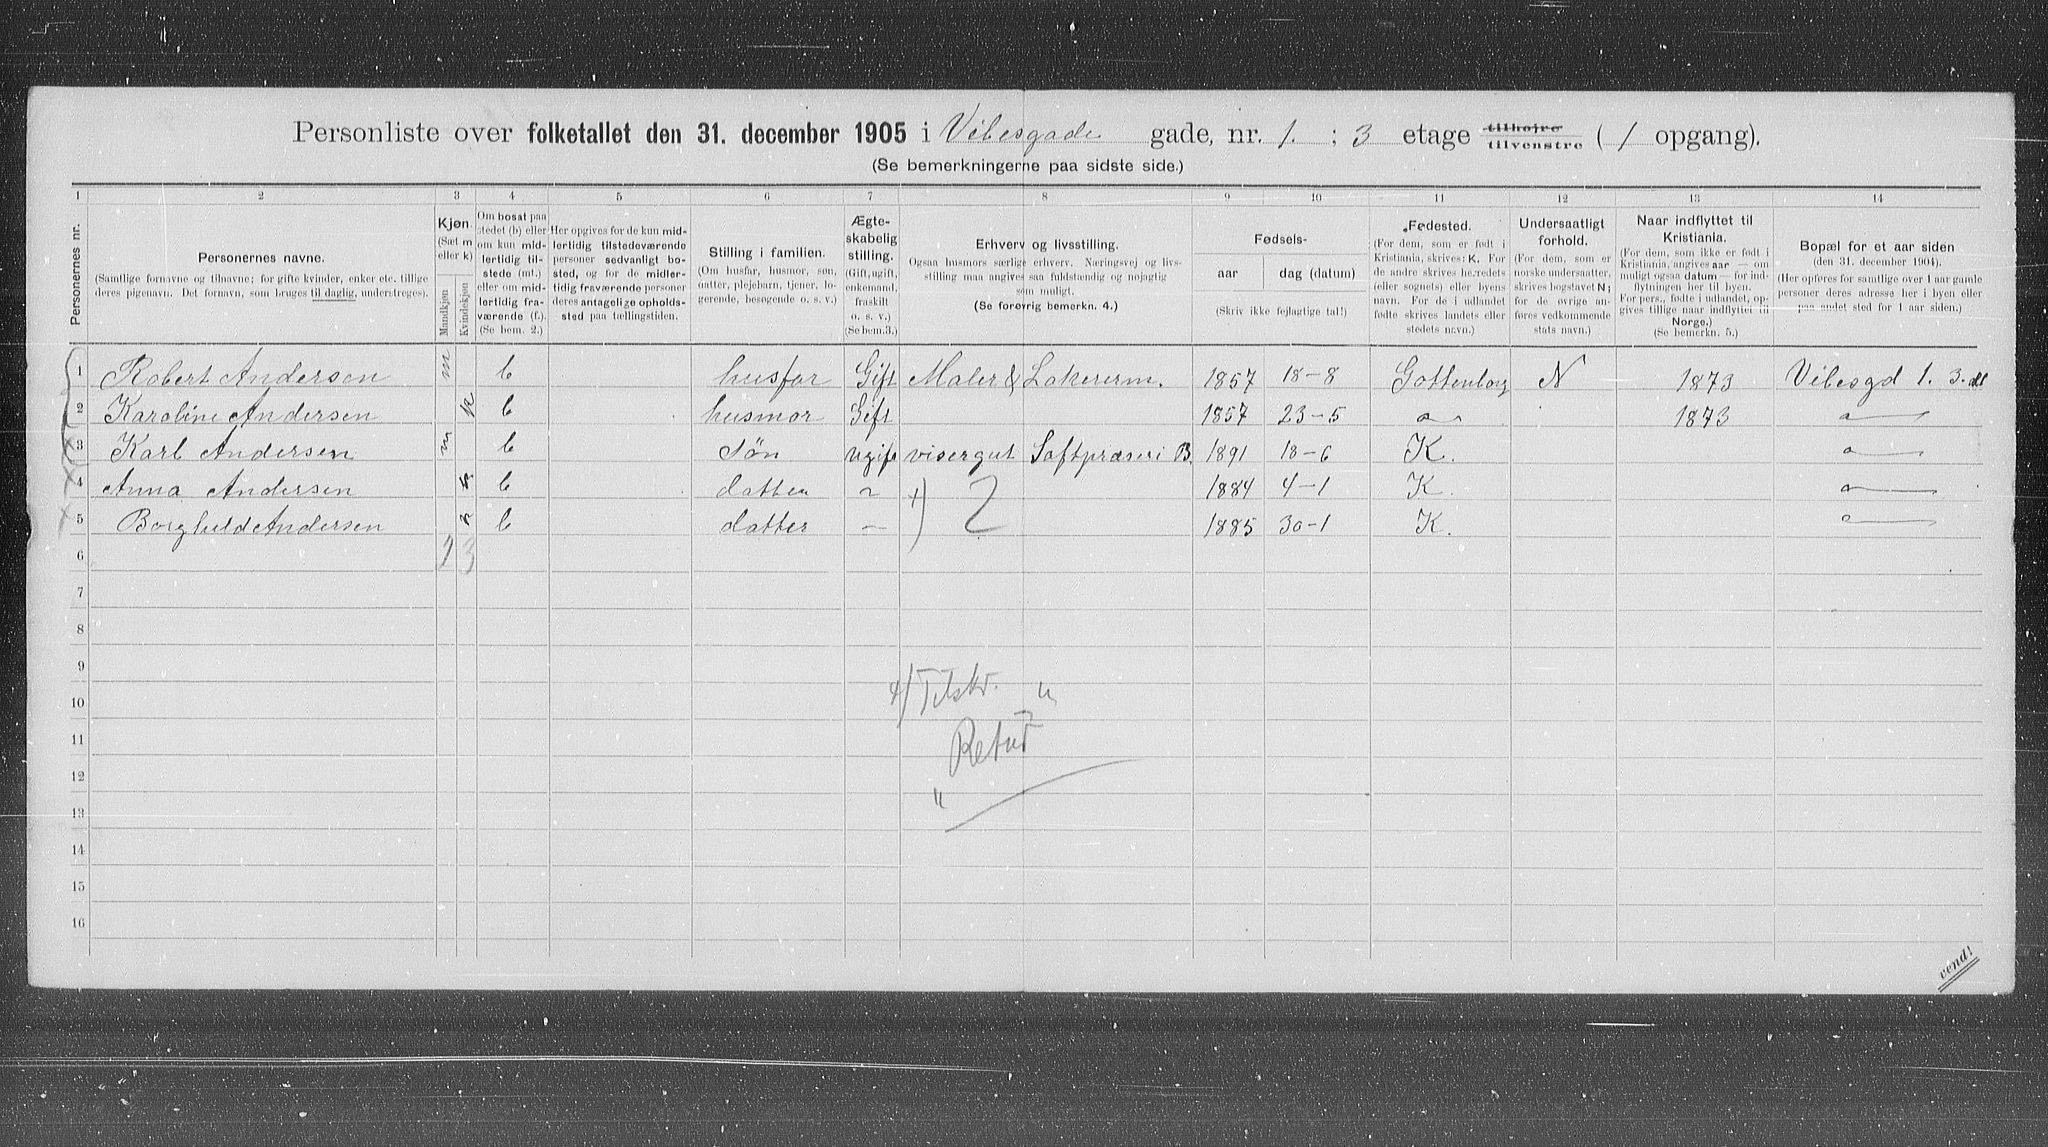 Personliste over folketallet den 31. december 1905 i Vibesgade gade, nr. 1. ; 3 etage tilhøjre tilvenstre ( 1 opgang).
(Se bemerkningerne paa sidste side.)
1 2 3 4 5 6 7 8 9 10 11 12 13 14
Personernes nr.
Personernes navne.
(Samtlige fornavne og tilnavne; for gifte kvinder, enker etc. tillige
deres pigenavn. Det fornavn, som bruges til daglig, understreges).
Kjøn.
(Sæt m
eller k)
Mandkjøn
Kvindekjøn
Om bosat paa
stedet (b) eller
om kun mid-
lertidig til-
stede (mt.)
eller om mid-
lertidig fra-
værende (f.).
(Se bem. 2.)
Her opgives for de kun mid-
lertidig tilstedeværende
personer sedvanligt bo-
sted, og for de midler-
tidig fraværende personer
deres antagelige opholds-
sted paa tællingstiden.
Stilling i familien.
(Om husfar, husmor, søn,
datter, plejebarn, tjener, lo-
gerende, besøgende o. s. v.)
Ægte-
skabelig
stilling.
(Gift, ugift,
enkemand,
fraskilt
o. s. v.)
(Se bem. 3.)
Erhverv og livsstilling.
Ogsaa husmors særlige erhverv. Næringsvej og livs-
stilling maa angives saa fuldstændig og nøjagtig
som muligt.
(Se forøvrig bemerkn. 4.)
Fødsels-
aar dag (datum)
(Skriv ikke fejlagtige tal!)
Fødested.
(For dem, som er født i
Kristiania, skrives: K. For
de andre skrives herredets
(eller sognets) eller byens
navn. For de i udlandet
fødte skrives landets eller
stedets navn.)
Undersaatligt
forhold.
(For dem, som er
norske undersaatter,
skrives bogstavet N;
for de øvrige an-
føres vedkommende
stats navn.)
Naar indflyttet til
Kristiania.
(For dem, som ikke er født i
Kristiania, angives aar — om
muligt ogsaa datum — for ind-
flytningen her til byen.
For pers., fødte i udlandet, op-
gives tillige naar indflyttet til
Norge.)
(Se bemerkn. 5.)
Bopæl for et aar siden
(den 31. december 1904).
(Her opføres for samtlige over 1 aar gamle
personer deres adresse her i byen eller
paa andet sted for 1 aar siden.)
1 Robert Andersen m b husfar Gift Maler & Lakererm. 1857 18-8 Gottenborg N 1873 Vibesgd 1. 3.
2 Karoline Andersen k b husmor Gift 1857 23-5 " 1873 "
3 Karl Andersen m b søn ugift visergut Saftpræseri B. 1891 18-6 K. "
4 Anna Andersen k b datter " +) 2 1884 4-1 K. "
5 Borghild Andersen k b datter — 1885 30-1 K. "
6 2 3
7
8
9
+) Tilskr. "
10
Retur
11
12
"
13
14
15
16
vend!